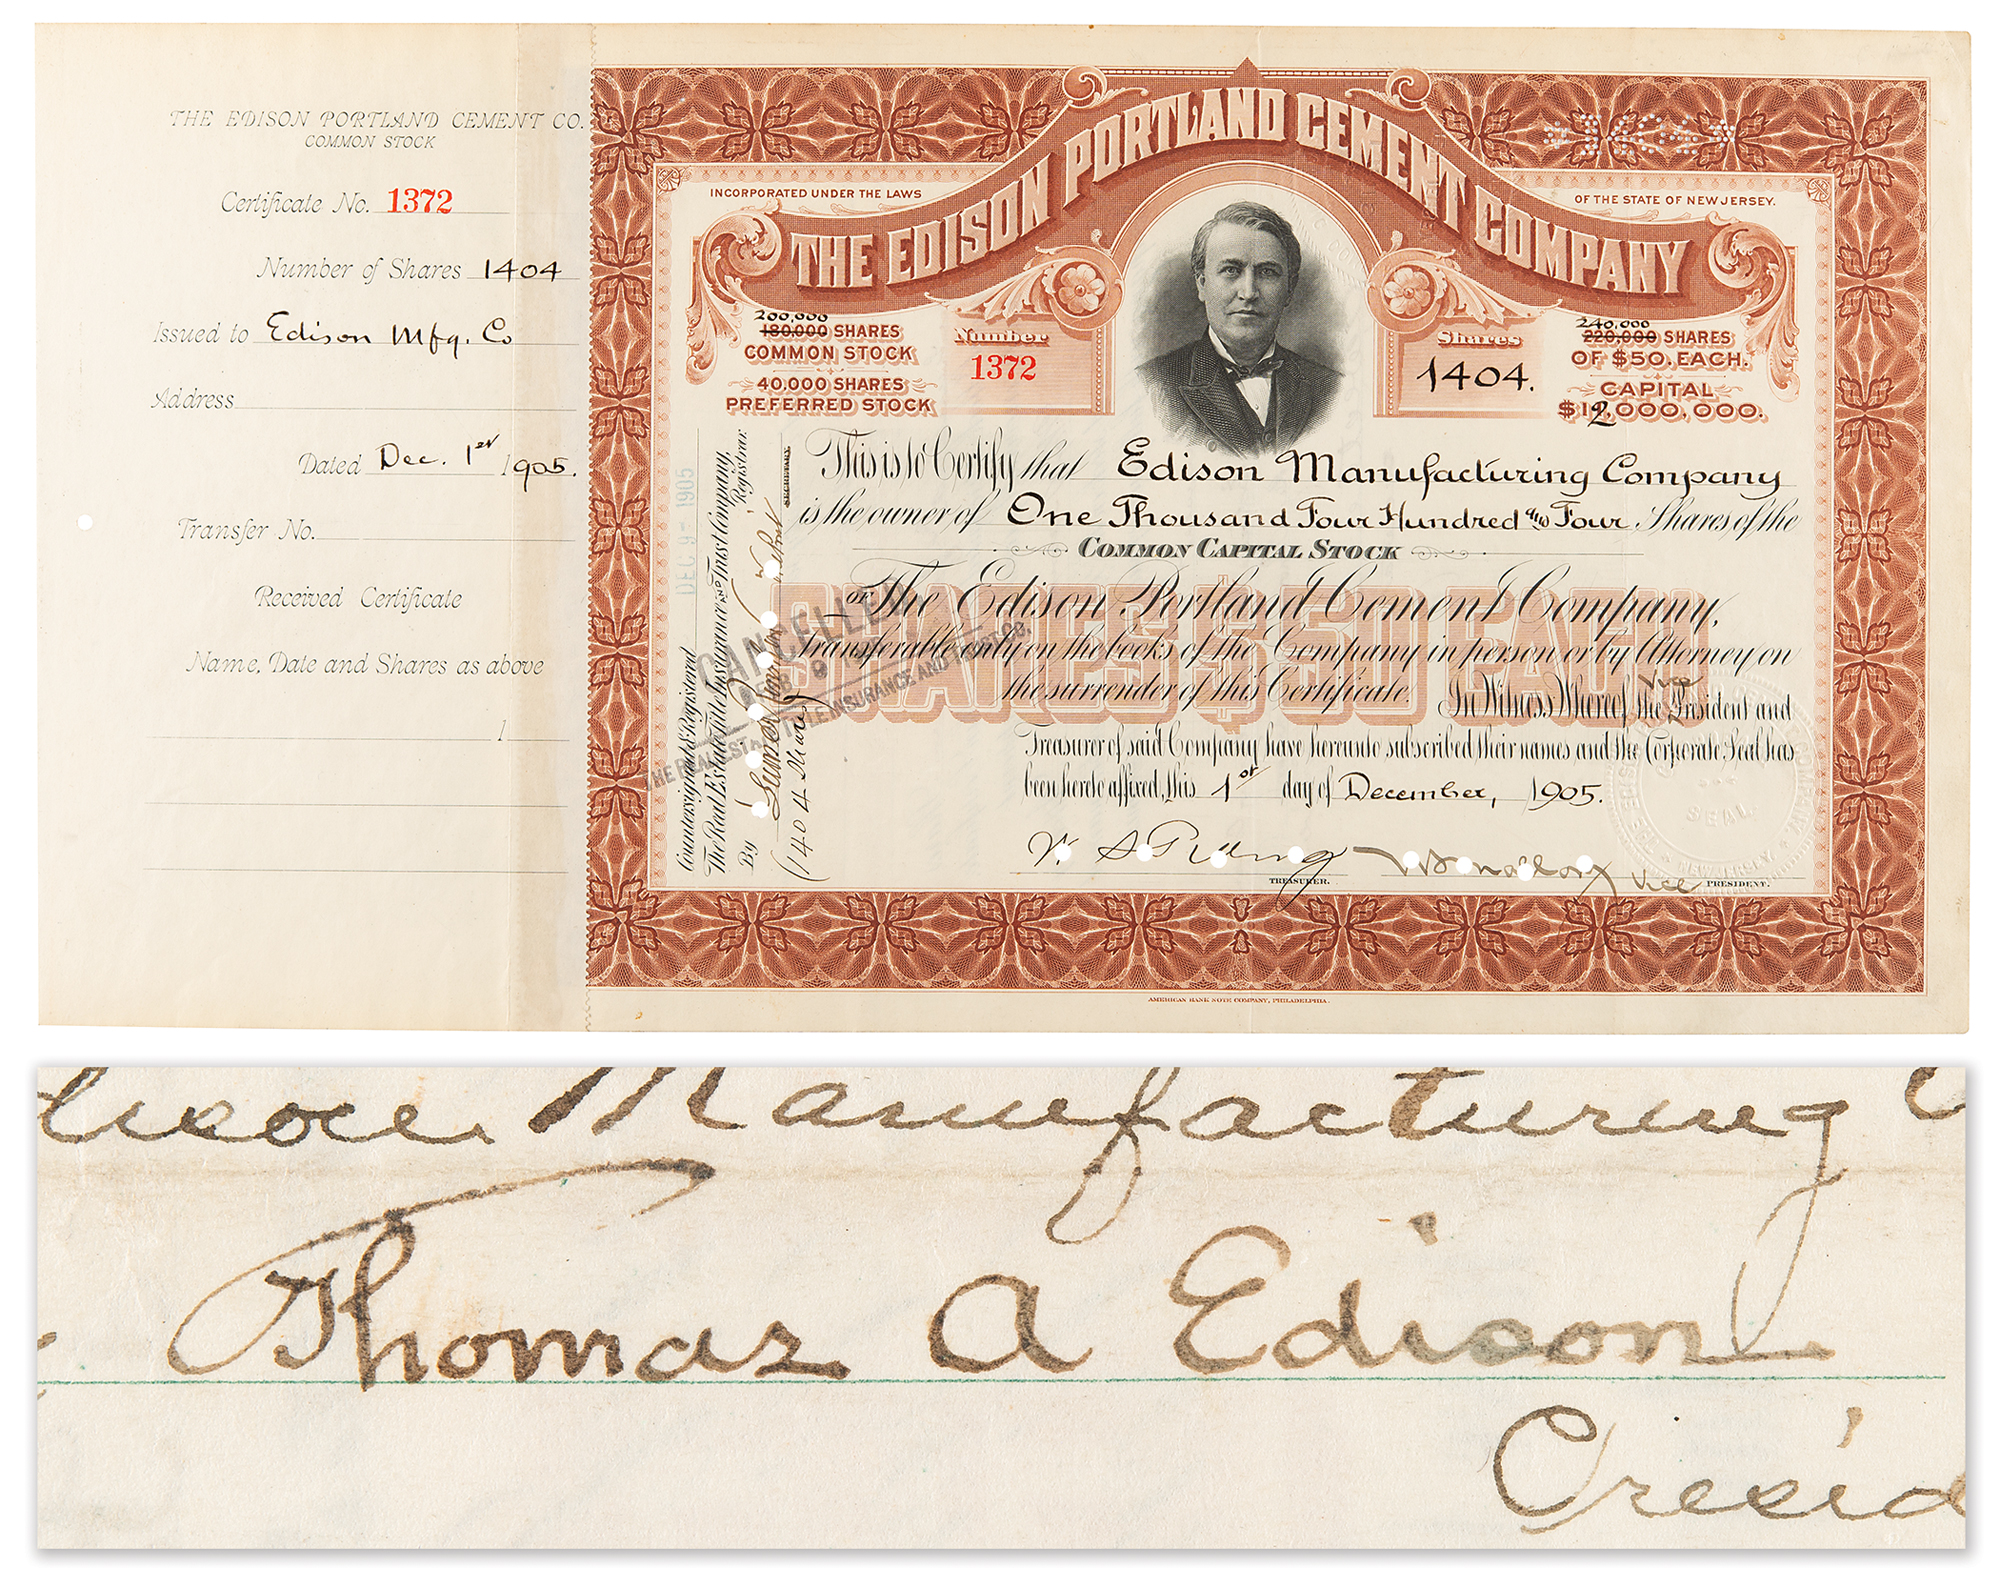 THE EDISON PORTLAND CEMENT CO.
COMMON STOCK
Certificate No. 1372
Number of Shares 1404
Issued to Edison Mfg. Co
Address
Dated Dec. 1st 1905.
Transfer No.
Received Certificate
Name, Date and Shares as above
1
THE EDISON PORTLAND CEMENT COMPANY
INCORPORATED UNDER THE LAWS
OF THE STATE OF NEW JERSEY.
200,000
180,000 SHARES
COMMON STOCK
40,000 SHARES
PREFERRED STOCK
Number
1372
Shares
1404.
240,000
220,000 SHARES
OF $50. EACH.
CAPITAL
$12,000,000.
This is to Certify that Edison Manufacturing Company
is the owner of One Thousand Four Hundred and Four Shares of the
COMMON CAPITAL STOCK
OF The Edison Portland Cement Company,
transferable only on the books of the Company in person or by Attorney on
the surrender of this Certificate. In Witness Whereof the Vice President and
Treasurer of said Company have hereunto subscribed their names and the Corporate Seal has
been hereto affixed, this 1st day of December, 1905.
SHARES $50 EACH
TREASURER.
W S Mallory Vice PRESIDENT.
Countersigned & Registered
The Real Estate Title Insurance and Trust Company,
Registrar.
By
SECRETARY
(1404 Shares)
DEC 9 - 1905
CANCELLED
THE REAL ESTATE TITLE INSURANCE AND TRUST CO.
SEAL
NEW JERSEY
AMERICAN BANK NOTE COMPANY, PHILADELPHIA.
dison Manufacturing C
Thomas A Edison
Presid